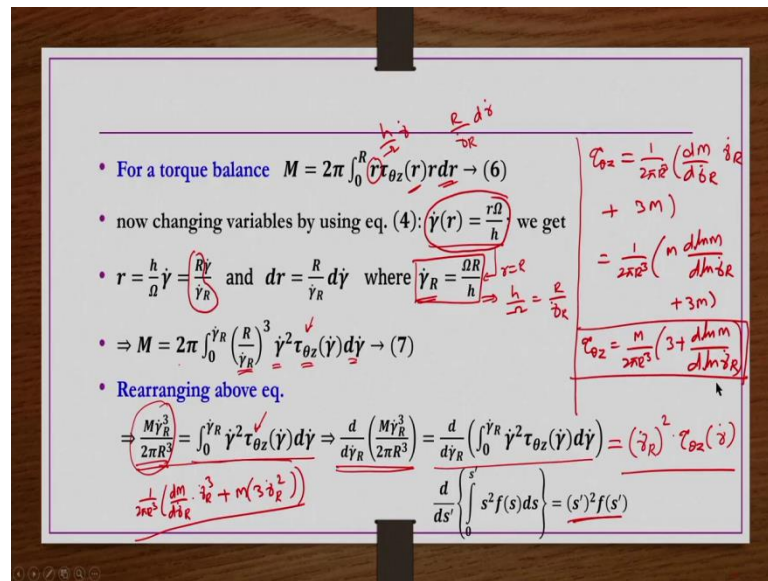 h/Ω γ̇    R/γ̇R dγ̇
• For a torque balance M = 2π ∫₀ᴿ rτθz(r)rdr → (6)
• now changing variables by using eq. (4): γ̇(r) = rΩ/h, we get
r=R
• r = h/Ω γ̇ = Rγ̇/γ̇R and dr = R/γ̇R dγ̇ where γ̇R = ΩR/h
⇒ h/Ω = R/γ̇R
• ⇒ M = 2π ∫₀^γ̇R (R/γ̇R)³ γ̇²τθz(γ̇)dγ̇ → (7)
• Rearranging above eq.
⇒ Mγ̇R³/2πR³ = ∫₀^γ̇R γ̇²τθz(γ̇)dγ̇ ⇒ d/dγ̇R (Mγ̇R³/2πR³) = d/dγ̇R (∫₀^γ̇R γ̇²τθz(γ̇)dγ̇) = (γ̇R)² · τθz(γ̇)
1/2πR³ (dM/dγ̇R · γ̇R³ + M(3γ̇R²))
d/ds′ {∫₀^s′ s²f(s)ds} = (s′)²f(s′)
τθz = 1/2πR³ (dM/dγ̇R γ̇R
+ 3M)
= 1/2πR³ (M dlnM/dlnγ̇R
+3M)
τθz = M/2πR³ (3 + dlnM/dlnγ̇R)